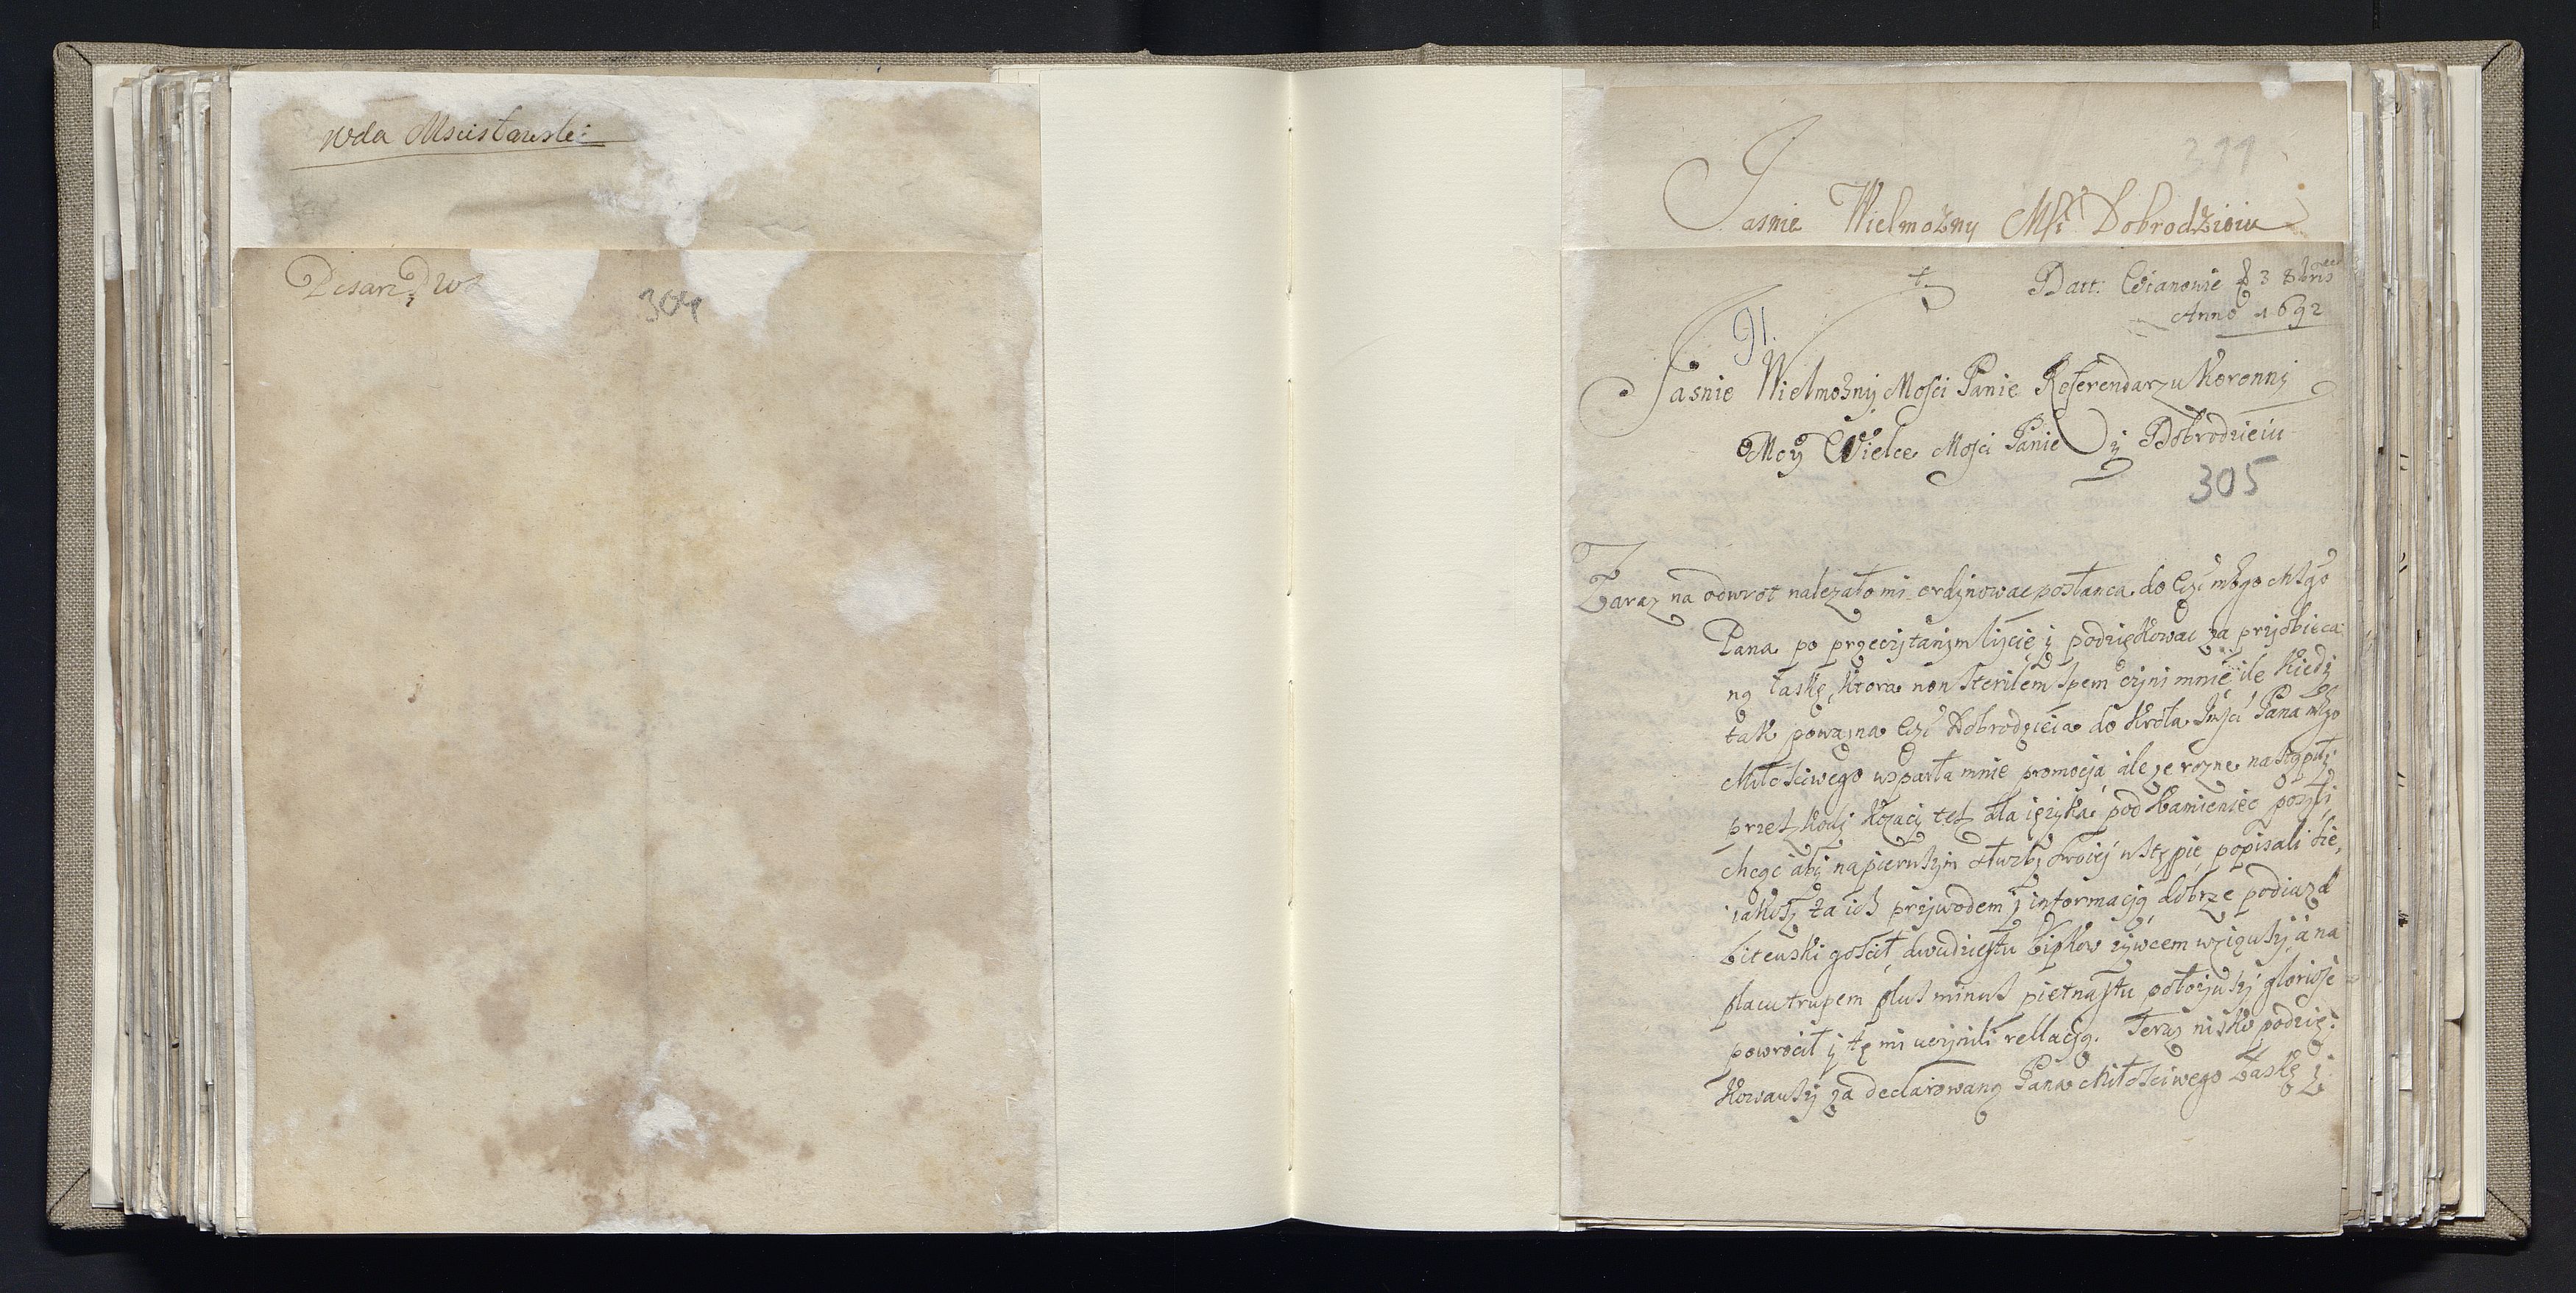 Wda Mscisławski
Pisarz Dwo
304
299
Jasnie Wielmożny Msci Dobrodzieiu
Datt: 3 8bris
Anno 1692
91.
Jasnie Wielmożnÿ Mosci Panie Referendarzu Koronnÿ
Moÿ Wielce Mosci Panie ÿ Dobrodzieiu
305
Zaraz na odwrot nalezało mi ordÿnowac posłanca do
Pana po przeczÿtanÿm lyscie ÿ podziękowac za przÿobieca
ną łaskę, ktora non sterilem spem czÿni mnie ile kiedÿ
tak powazna Dobrodzieia do Krola Jmsci Pana mego
Miłosciwego wsparła mnie promocja ale ze rozne nastąpiłÿ
przeszkodÿ Kozacÿ tesz dla ięzÿka pod Kamieniec poszli
chcąc abÿ na pierwszÿm słuzbÿ swoieÿ wstępie popisali sie,
iakosz za ich przÿwodem ÿ informacÿą dobrze podiazd
gościł, dwudziestu Lipkow zÿwcem wziąwszÿ a na
placu trupem plus minus pietnastu położÿwszÿ gloriose
powrocił ÿ tę mi uczÿnili rellacÿą. Teraz nisko podzię:
kowawszÿ za declarowaną Pana Miłosciwego Łaskę ÿ